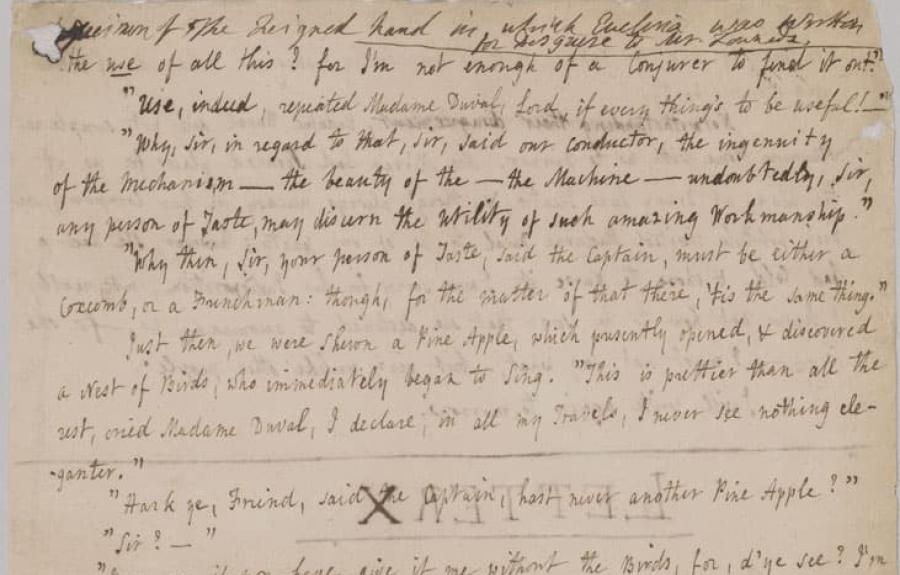 Specimen of the feigned hand in which Evelina was written
for disguise to Mr. Lowndes.
the use of all this? for I'm not enough of a Conjurer to find it out."
"Use, indeed, repeated Madame Duval, Lord, if every thing's to be useful!—"
"Why, Sir, in regard to that, Sir, said our conductor, the ingenuity
of the Mechanism — the beauty of the — the Machine — undoubtedly, Sir,
any person of Taste, may discern the utility of such amazing Workmanship."
"Why then, Sir, your person of Taste, said the Captain, must be either a
Coxcomb, or a Frenchman: though, for the matter of that there, 'tis the same thing."
Just then, we were shewn a Pine Apple, which presently opened, & discovered
a Nest of Birds, who immediately began to Sing. "This is prettier than all the
rest, cried Madame Duval, I declare, in all my Travels, I never see nothing ele-
-ganter."
"Hark ye, Friend, said the Captain, hast never another Pine Apple?"
"Sir? — "
give it me without the Birds, for, d'ye see? I'm
LETTER
X